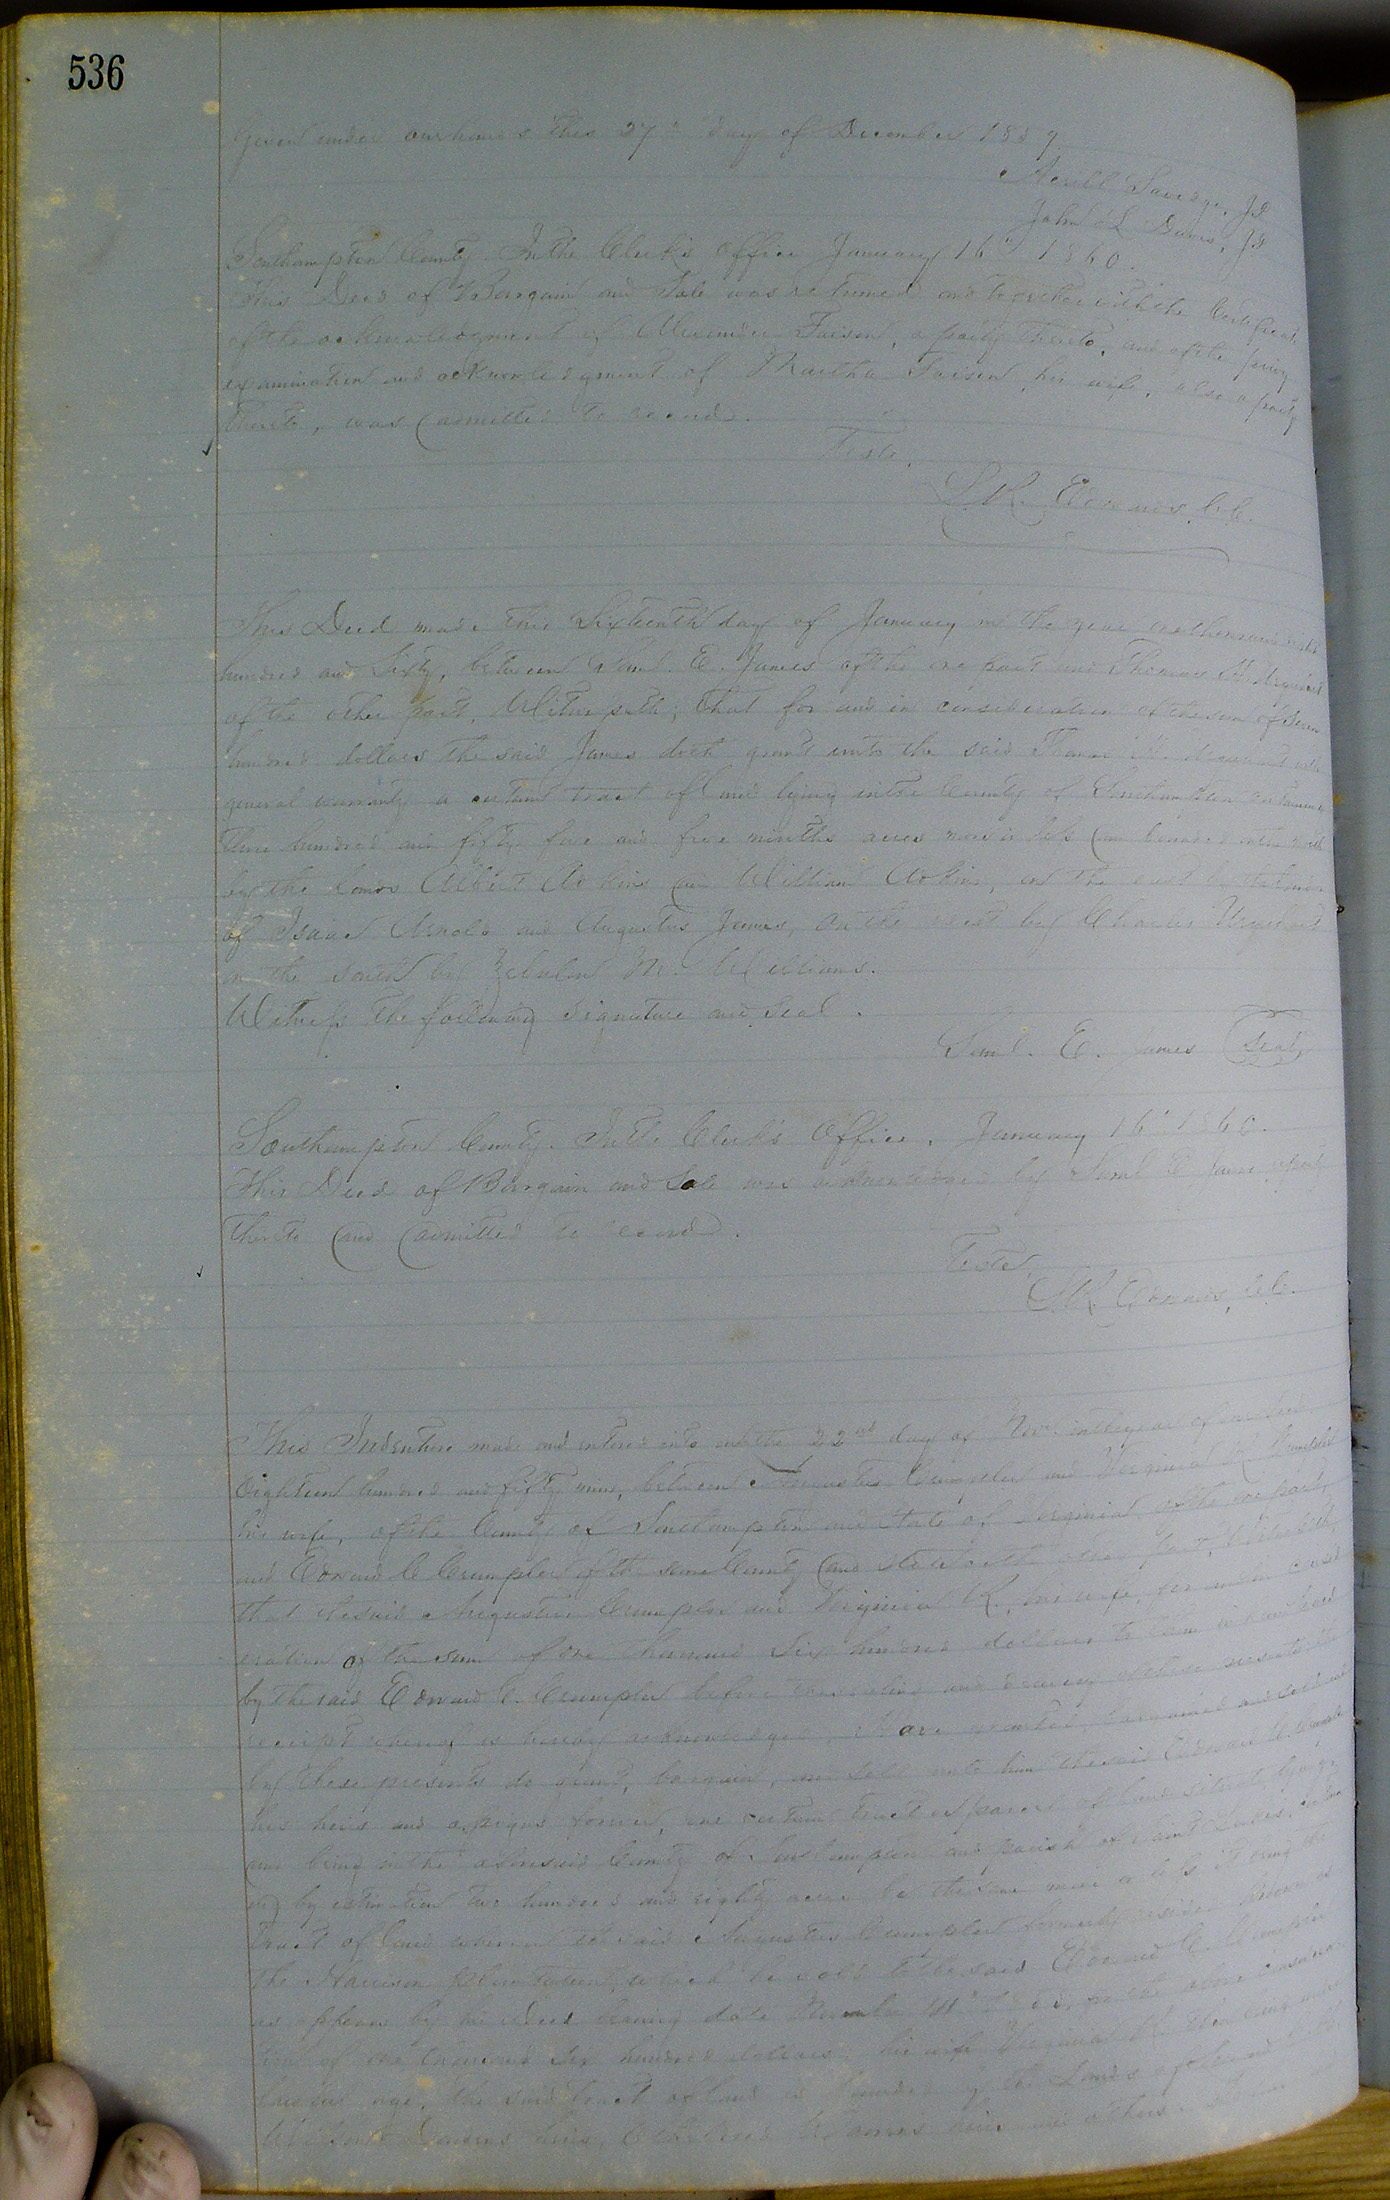 536
Given under our hands this 27th day of December 1859.
Newitt Savage, JP
John L Davis, JP
Southampton County. In the Clerk's Office January 16th 1860.
This Deed of Bargain and Sale was returned and together with the Certificate
of the acknowledgment of Alexander Faison, a party thereto, and of the privy
examination and acknowledgment of Martha Faison his wife, also a party
thereto, was admitted to record.
Teste,
L. R. Edwards, C.C.
This Deed made this Sixteenth day of January in the year one thousand eight
hundred and Sixty, between Saml. E. James of the one part and Thomas H. Urquhart
of the other part, Witnesseth; that for and in consideration of the sum of Seven
hundred dollars the said James doth grant unto the said Thomas H. Urquhart with
general warranty a certain tract of land lying in the County of Southampton containing
three hundred and fifty five and five ninths acres more or less and bounded on the north
by the lands Albert Atkins and William Atkins, on the east by the lands
of Isaac Arnold and Augustus James, on the west by Charles Urquhart
on the south by Zebulon M. Williams.
Witness the following signature and seal.
Saml. E. James Seal
Southampton County. In the Clerk's Office, January 16th 1860.
This Deed of Bargain and Sale was acknowledged by Saml E James a party
thereto and admitted to record.
Teste,
L R. Edwards, C.C.
This Indenture made and entered into on the 22nd day of Nov. in the year of our Lord
Eighteen hundred and fifty nine, between Augustus Crumpler and Virginia R Crumpler
his wife, of the County of Southampton and State of Virginia, of the one part,
and Edward C Crumpler of the same County and State of the other part, Witnesseth
that the said Augustus Crumpler and Virginia R., his wife, for and in consid-
eration of the sum of one thousand Six hundred dollars to them in hand
by the said Edward C. Crumpler before the sealing and delivery of these presents the
receipt whereof is hereby acknowledged, Have granted, bargained and sold and
by these presents do grant, bargain, and sell unto him the said Edward C. Crumpler
his heirs and assigns forever, one certain tract or parcel of land situate, lying
and being in the aforesaid County of Southampton and parish of Saint Lukes, contain-
ing by estimation two hundred and eighty acres be the same more or less it being the
tract of land whereon the said Augustus Crumpler formerly resided known as
the Harrison plantation, which he sold to the said Edward C. Crumpler
as appears by the deed bearing date November in the above considera-
tion of one thousand Six hundred dollars, his wife Virginia R. then being under
lawful age, the said tract of land is bounded by the lands of
heirs, and others.